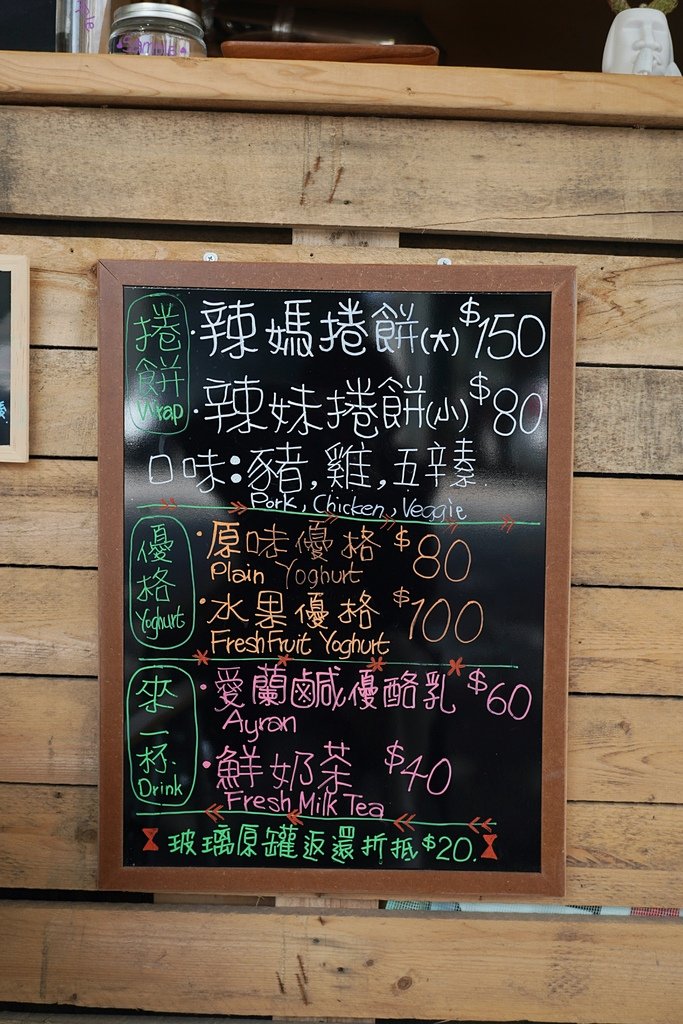 Sample
捲餅
Wrap
·辣媽捲餅(大) $150
·辣妹捲餅(小) $80
口味:豬,雞,五辛素.
Pork, Chicken, Veggie
優格
Yoghurt
·原味優格 $80
Plain Yoghurt
·水果優格 $100
Fresh Fruit Yoghurt
來一杯
Drink
·愛蘭鹹優酪乳 $60
Ayran
·鮮奶茶 $40
Fresh Milk Tea
玻璃原罐返還折抵$20.